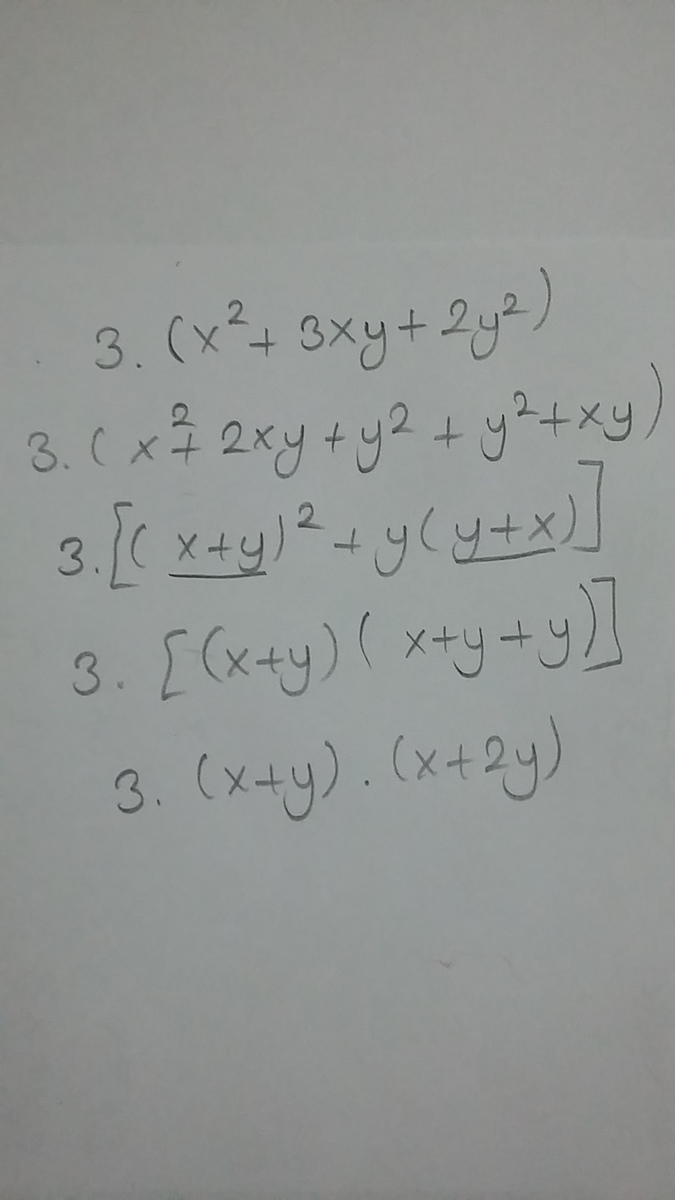 3. (x² + 3xy + 2y²)
3. (x² + 2xy + y² + y² + xy)
3. [(x+y)² + y(y+x)]
3. [(x+y)(x+y+y)]
3. (x+y) . (x+2y)